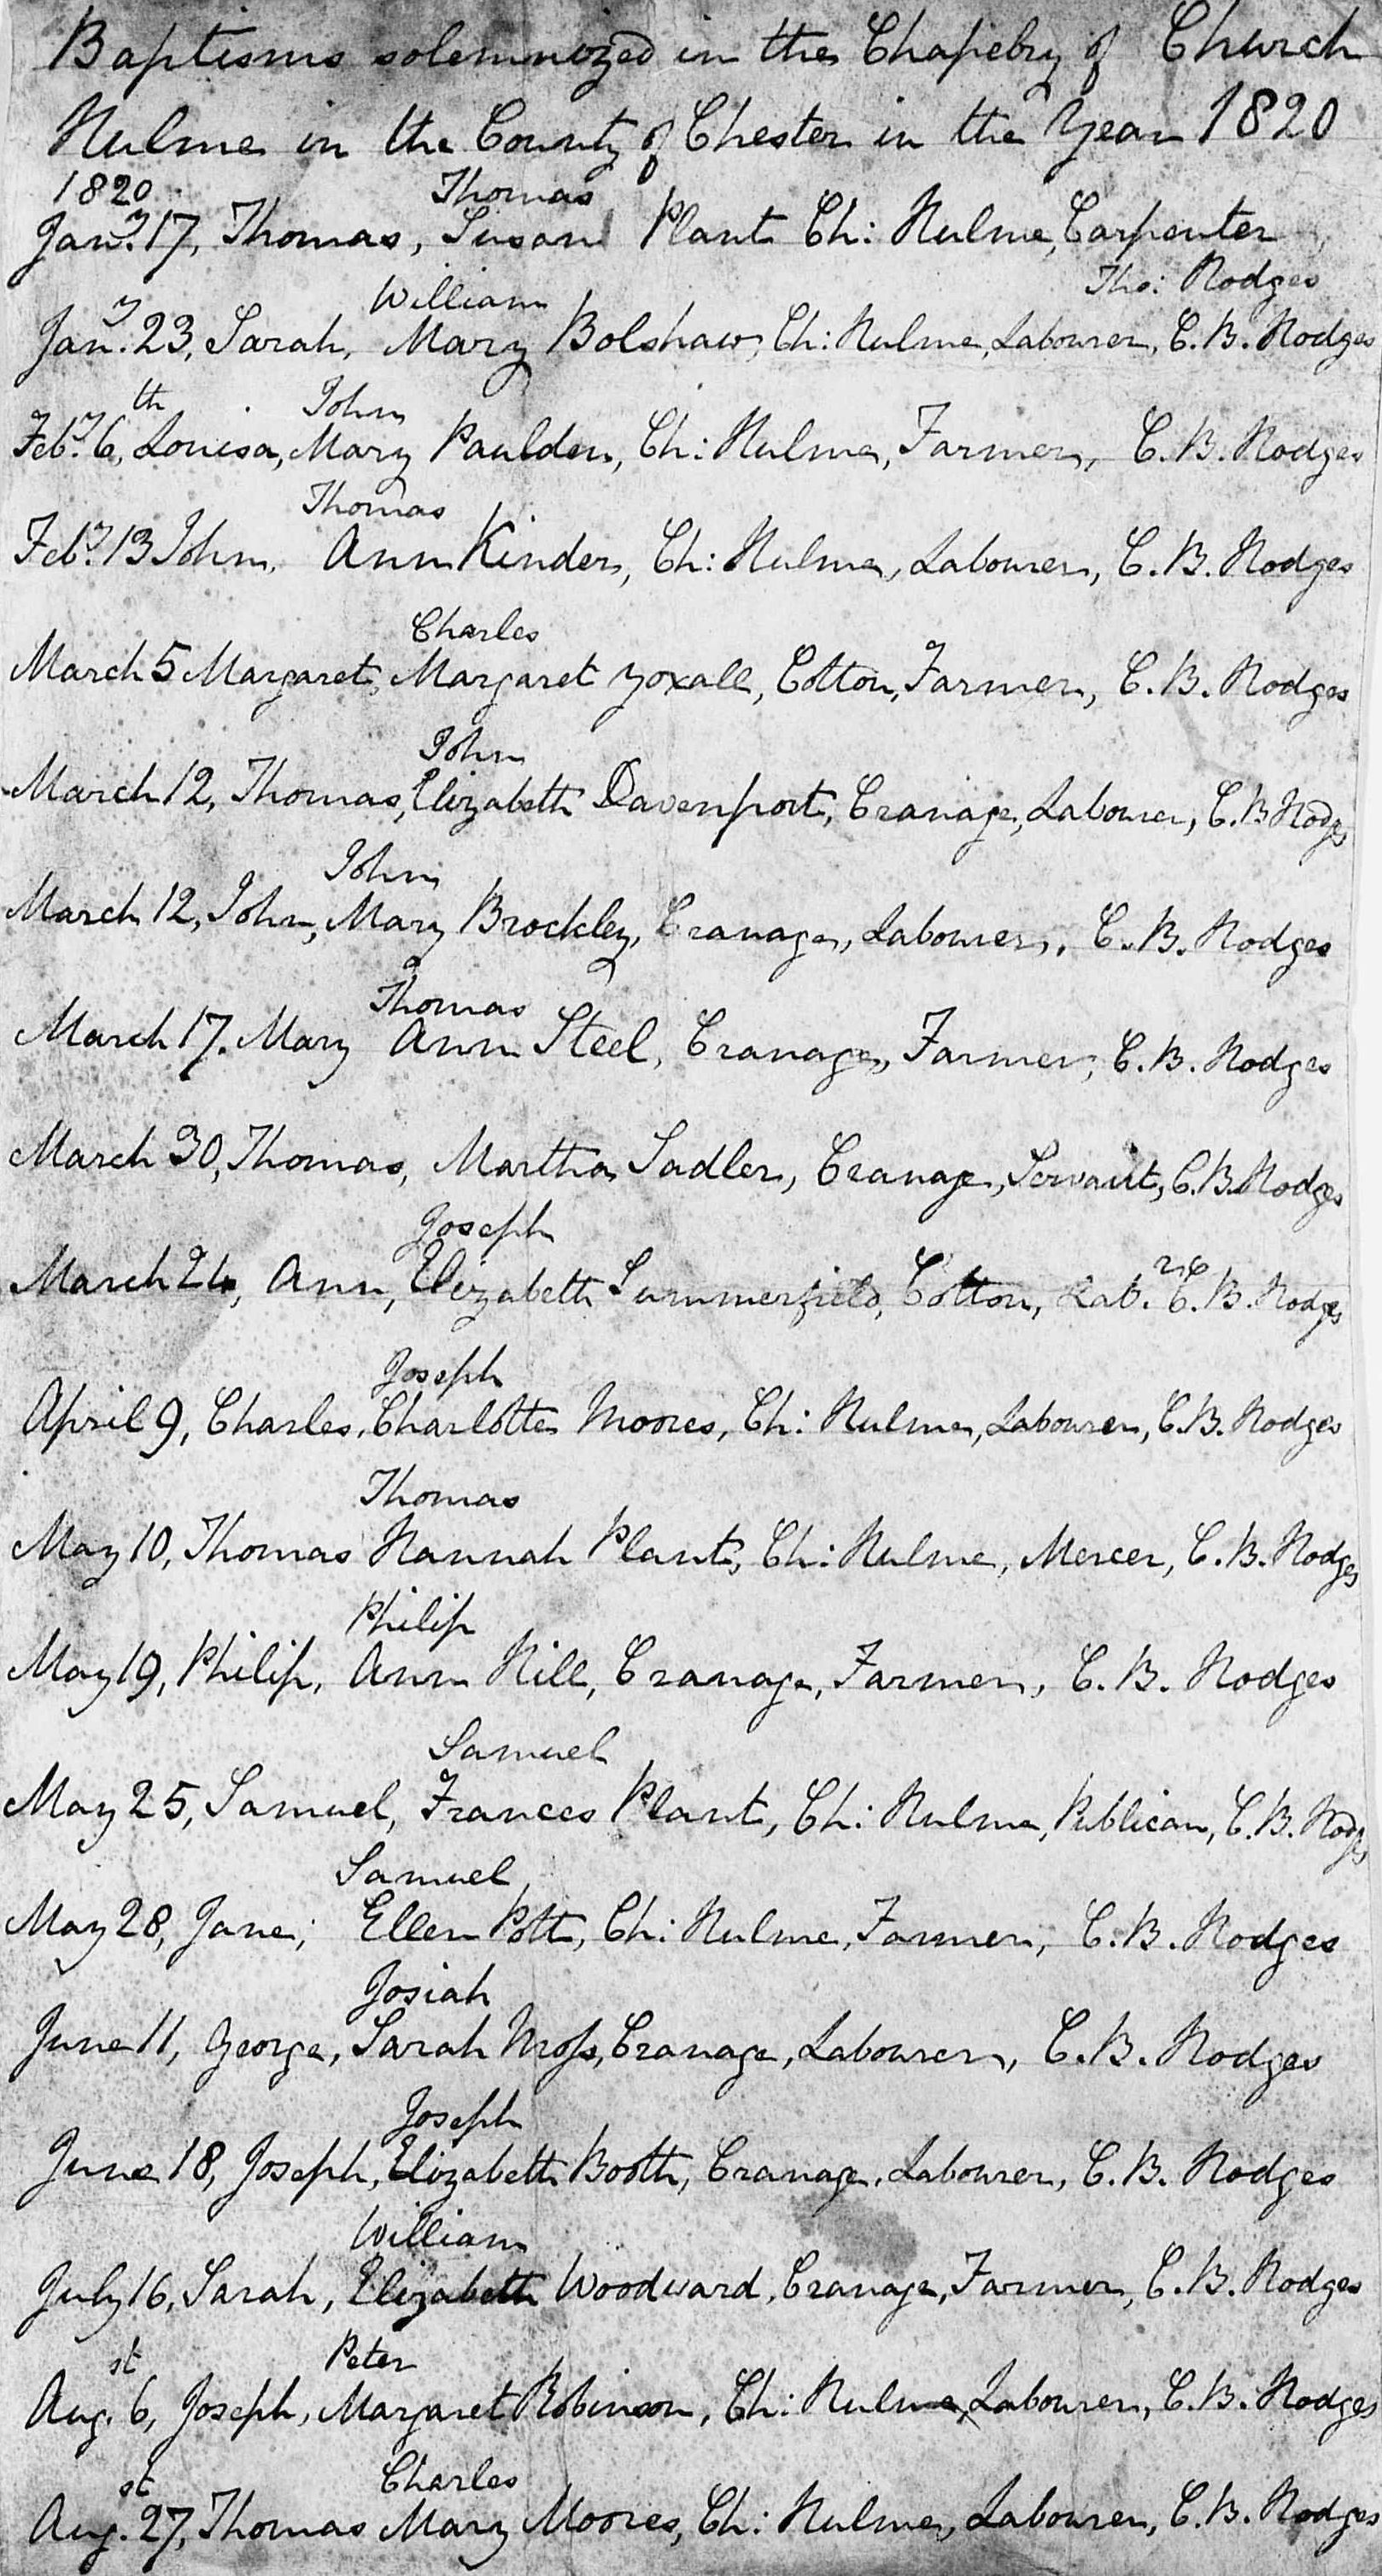 Baptisms solemnized in the Chapelry of Church
Hulme in the County of Chester in the Year 1820
1820 Thomas
Jan.y 17, Thomas, Susan Plant Ch: Hulme, Carpenter
Tho: Hodges
William
Jan.y 23, Sarah, Mary Bolshaw, Ch: Hulme, Labourer, C. B. Hodges
th John
Feb.y 6, Louisa, Mary Paulden, Ch: Hulme, Farmer, C. B. Hodges
Thomas
Feb.y 13 John, Ann Kinder, Ch: Hulme, Labourer, C. B. Hodges
Charles
March 5 Margaret, Margaret Yoxall, Cotton, Farmer, C. B. Hodges
John
March 12, Thomas, Elizabeth Davenport, Cranage, Labourer, C. B Hodges
John
March 12, John, Mary Brockley, Cranage, Labourer, C. B. Hodges
Thomas
March 17. Mary Ann Steel, Cranage, Farmer, C. B. Hodges
March 30, Thomas, Martha Sadler, Cranage, Servant, C. B. Hodges
Joseph
March 24, Ann, Elizabeth Summerfield, Cotton, Lab.re C. B. Hodges
Joseph
April 9, Charles, Charlotte Moores, Ch: Hulme, Labourer, C. B. Hodges
Thomas
May 10, Thomas Hannah Plant, Ch: Hulme, Mercer, C. B. Hodges
Philip
May 19, Philip, Ann Hill, Cranage, Farmer, C. B. Hodges
Samuel
May 25, Samuel, Frances Plant, Ch: Hulme, Publican, C. B. Hodges
Samuel
May 28, Jane, Ellen Pott, Ch: Hulme, Farmer, C. B. Hodges
Josiah
June 11, George, Sarah Moss, Cranage, Labourer, C. B. Hodges
Joseph
June 18, Joseph, Elizabeth Booth, Cranage, Labourer, C. B. Hodges
William
July 16, Sarah, Elizabeth Woodward, Cranage, Farmer, C. B. Hodges
st Peter
Aug. 6, Joseph, Margaret Robinson, Ch: Hulme, Labourer, C. B. Hodges
st Charles
Aug. 27, Thomas Mary Moores, Ch: Hulme, Labourer, C. B. Hodges